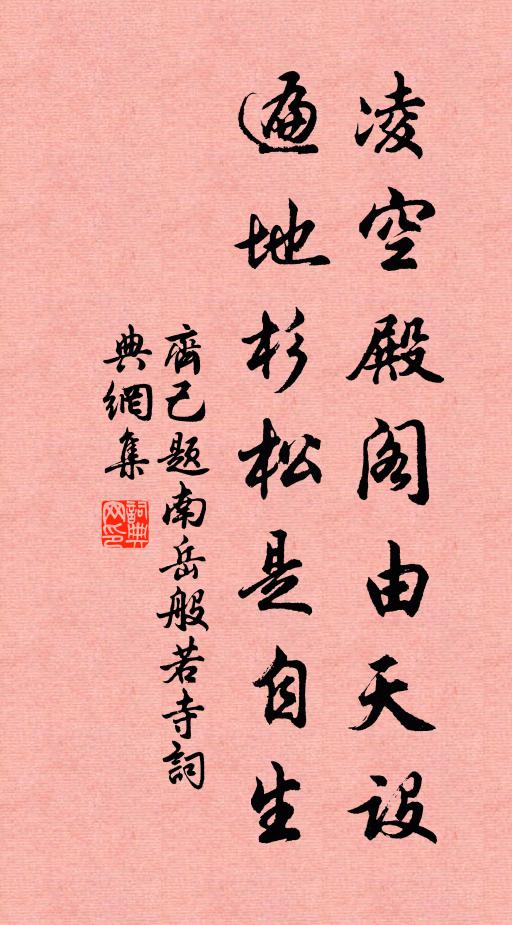 凌空殿阁由天设
遍地杉松是自生
齊己题南岳般若寺詞
典網集
詞典网印